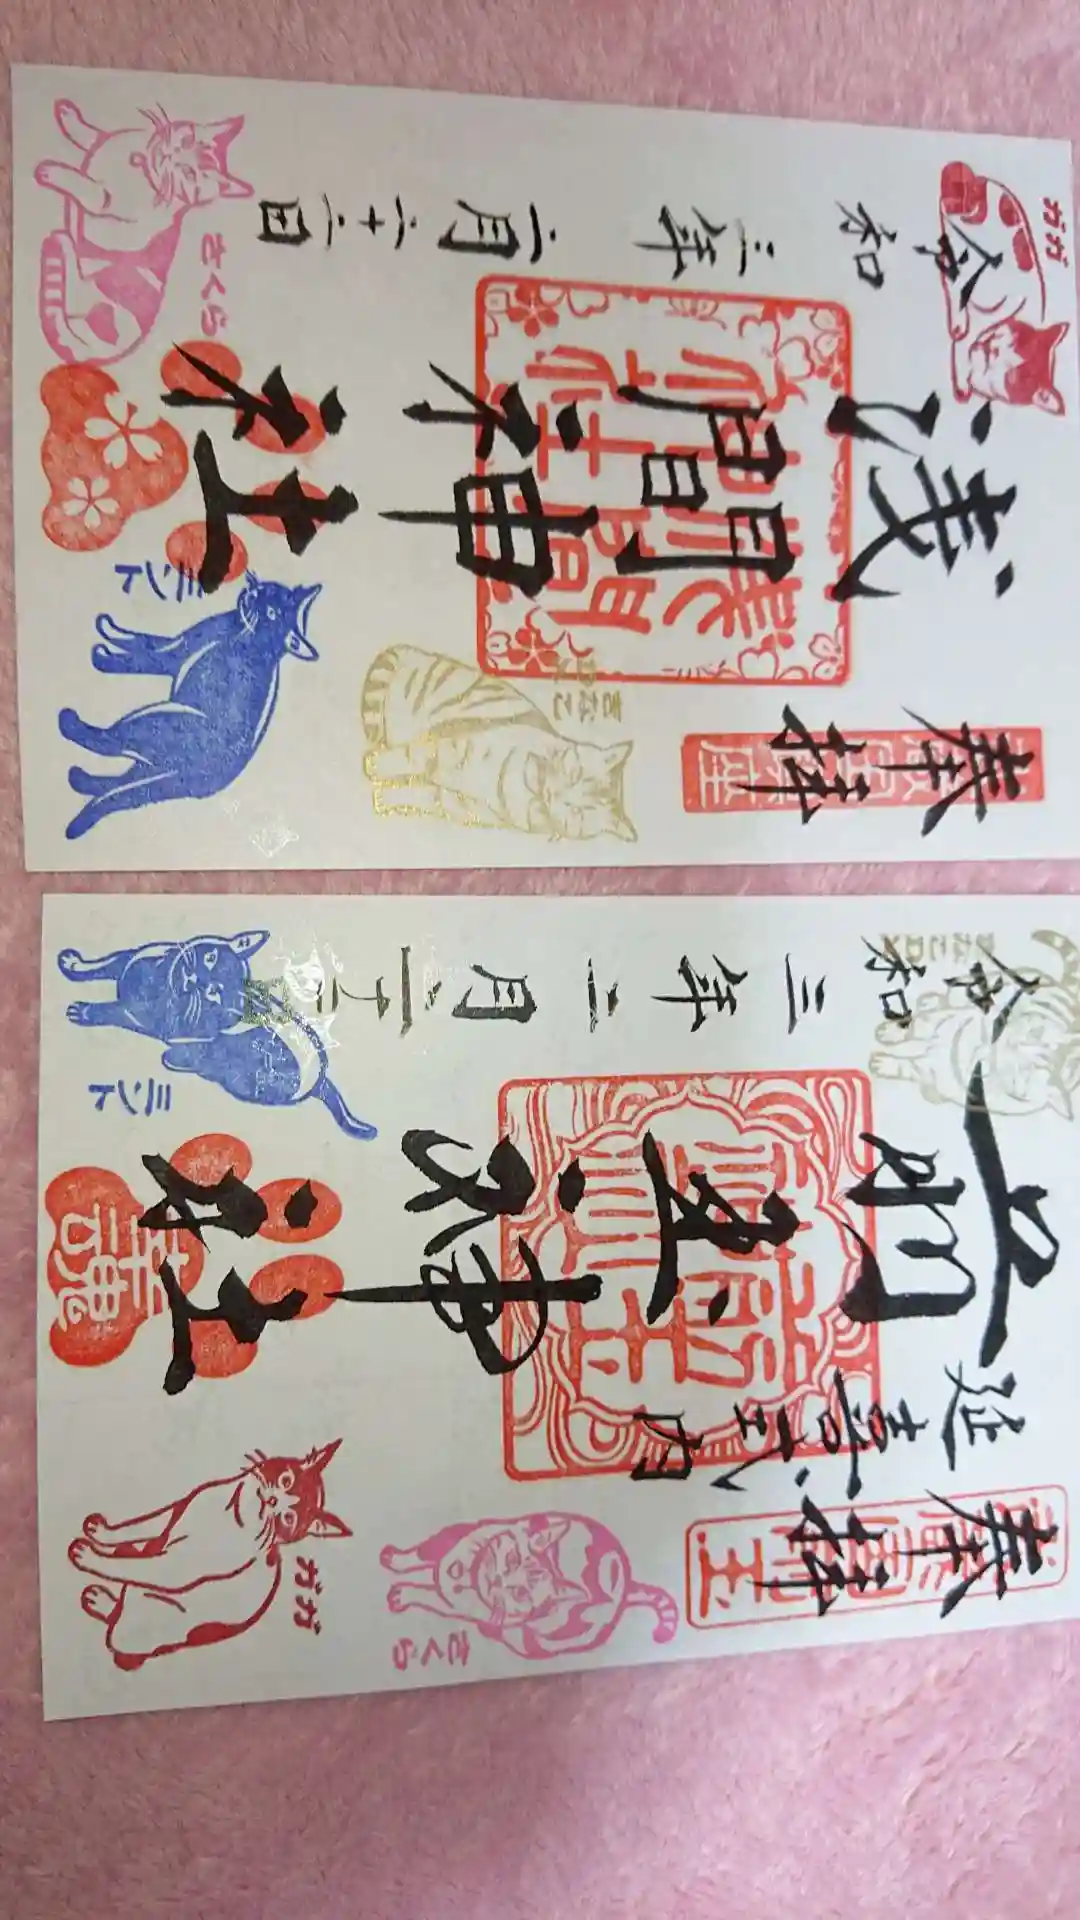 奉拝
浅間神社
令和三年二月二十二日
ガガ
きなこ
ミント
さくら
奉拝
延喜式内
前玉神社
令和三年二月二十二日
さくら
ガガ
幸魂
きなこ
ミント